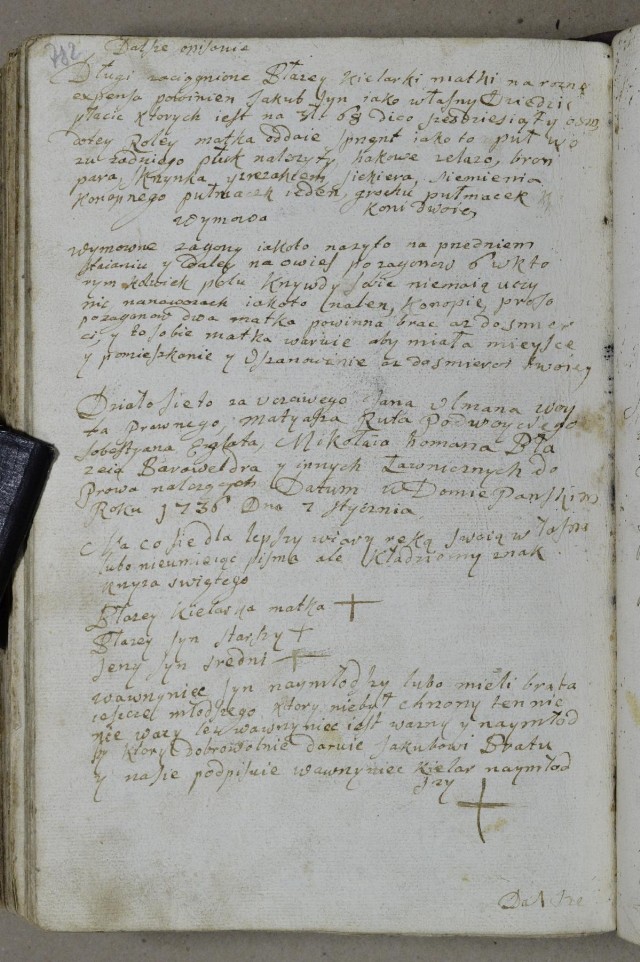 782
Dalsze opisanie
Długi zaciągnione Błazey Kielarki matki na rozne
expensa powinien Jakub syn iako własny Dziedzic
płacic ktorych iest na zł. 68 dico szescdziesiąt y osm,
dotey Roley matka oddaie sprzęnt iako to puł wo
zu zadniego płuk nalezyty, hakowe zelazo, bron
para, Krzynka, yrzezakiem, siekiera, siemienia
Konopnego pułmacek ieden, grochu pułmacek
Koni dwoie,
Wymowa
Wymowne zagony iakoto nazyto na przedniem
staianiu y daley na owies po zagonow 6 w kto
rym kolwiek polu Krzywdy sobie niemaią uczy
nic nanawozach iakoto lnalen, Konopie, proso
pozagonow dwa matka powinna brac az do smier
ci, y to sobie matka waruie aby miała mieysce
y pomieszkanie y Uszanowanie az do smierci swoiey
Działo sie to za uczciwego Jana Ulmana woy
ta prawnego, Matyasza Ruta Podwoyciego
Sobestyana Englota, Mikołaia Homana Bła
zeia Barowel dra y innych Ławnicznych do
Prawa nalezących Datum w Domie Pańskim
Roku 1736 Dna 7 stycznia
Na co sie dla lepszy wiary ręką swoią własną
lubo nieumieiąc pisma ale kładziemy znak
krzyza swiętego
Błazey Kielarka matka +
Błazey syn starszy +
Jerzy syn sredni +
wawrzyniec syn naymłodszy lubo mieli brata
ieszcze młodszego ktory niebył chrzony ten nic
nie wazy lecz wawrzyniec iest wazny y naymłod
szy ktory dobrowolnie daruie Jakubowi Bratu
y nasie podpisuie wawrzyniec Kielar naymłod
szy +
Dalsze